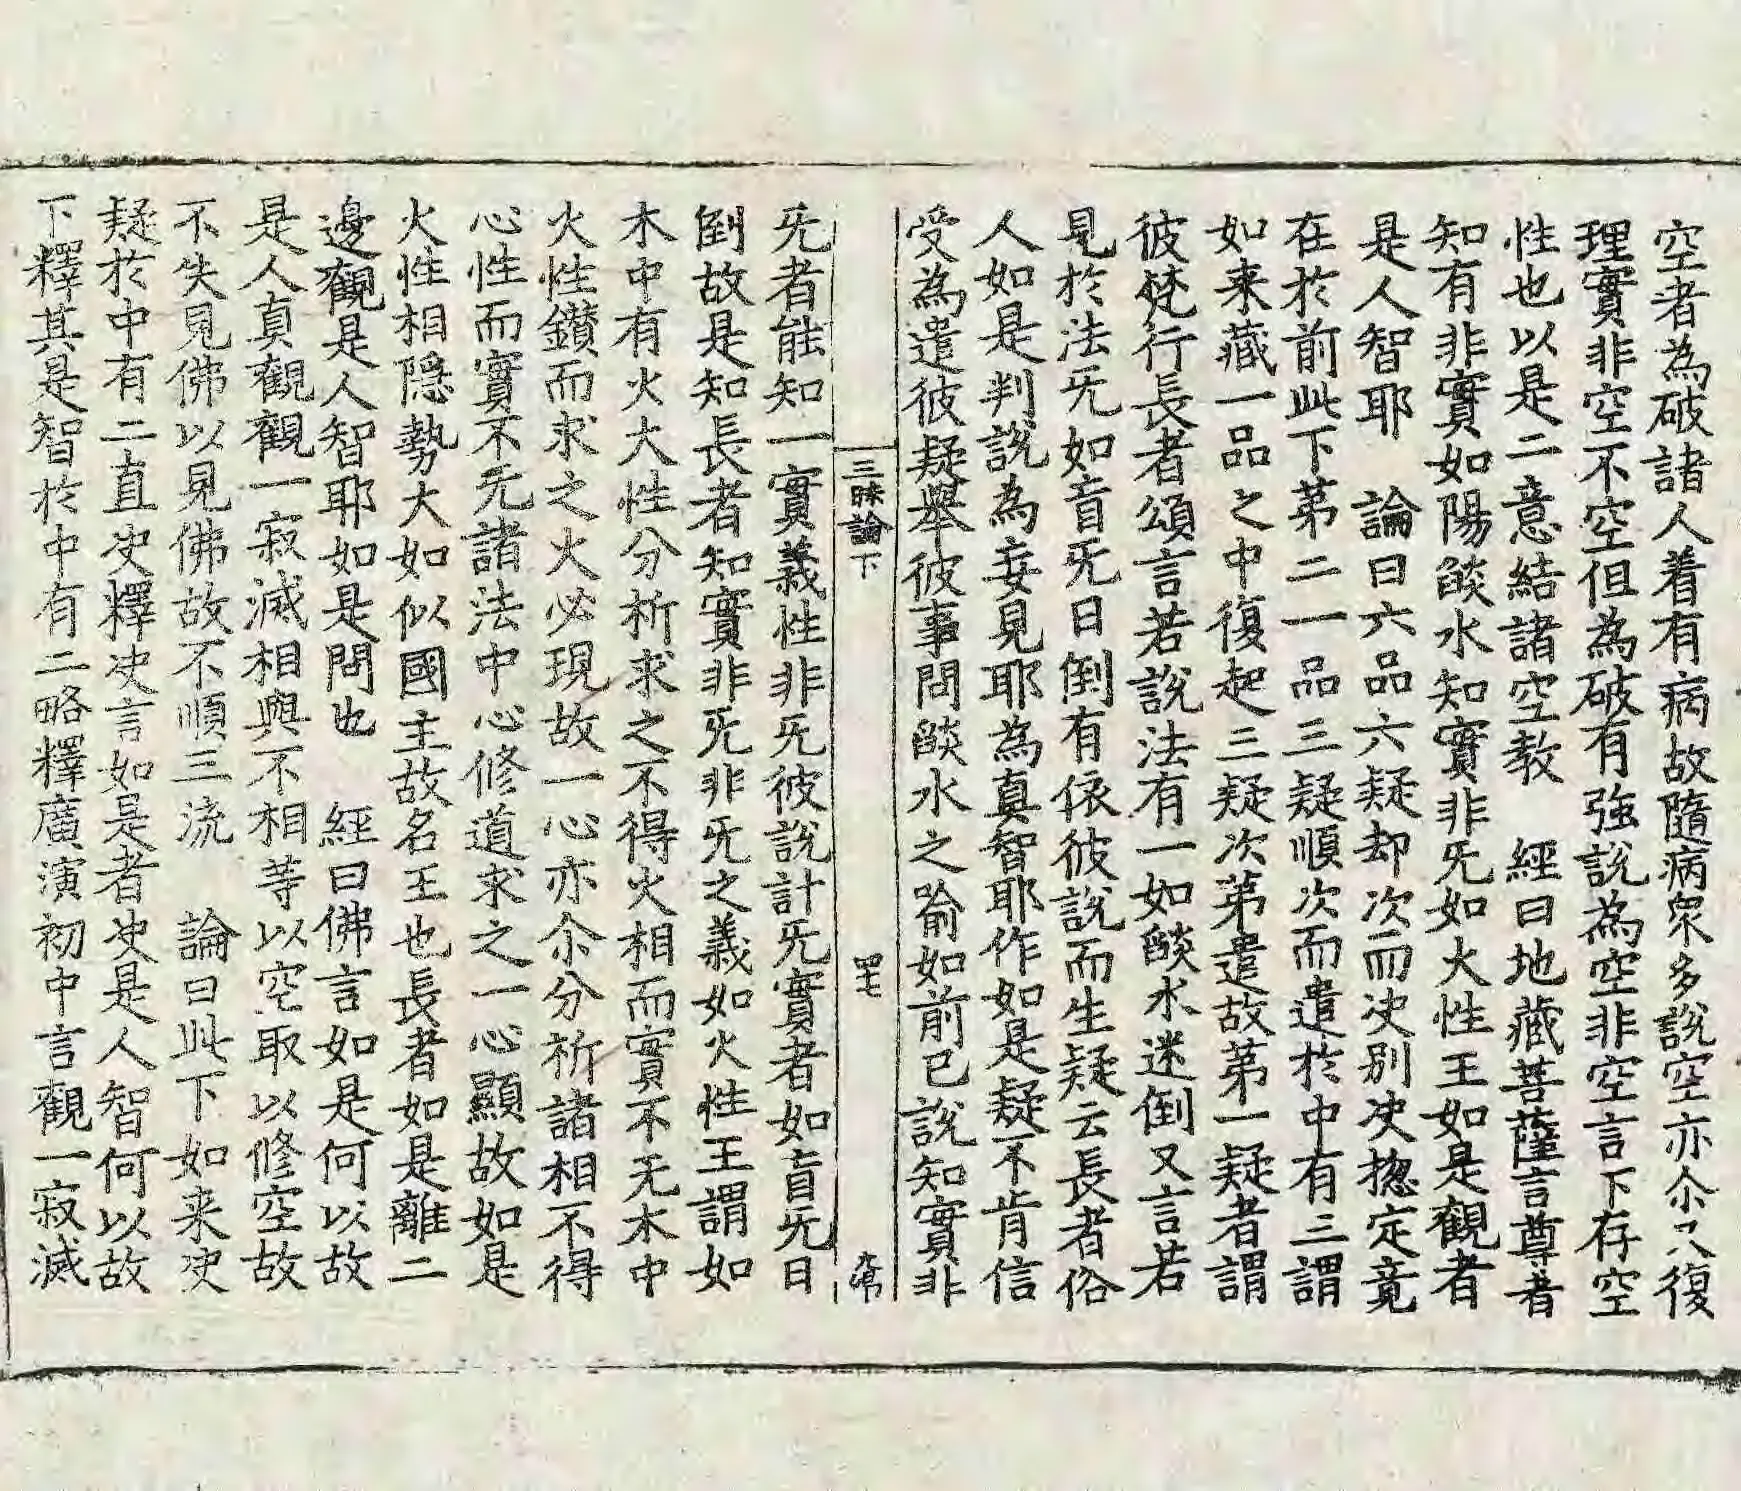 空者為破諸人着有病故隨病衆多說空亦尒只復
理實非空不空但為破有強說為空非空言下存空
性也以是二意結諸空教　經曰地藏菩薩言尊者
知有非實如陽燄水知實非旡如火性王如是觀者
是人智耶　論曰六品六疑却次而决别决揔定竟
在於前此下苐二一品三疑順次而遣於中有三謂
如来藏一品之中復起三疑次苐遣故苐一疑者謂
彼梵行長者頌言若說法有一如燄水迷倒又言若
見於法旡如盲旡日倒有依彼說而生疑云長者俗
人如是判說為妄見耶為真智耶作如是疑不肯信
受為遣彼疑舉彼事問燄水之喻如前已說知實非
三昧論下　四七
旡者能知一實義性非旡彼說計旡實者如盲旡日
倒故是知長者知實非旡非旡之義如火性王謂如
木中有火大性分析求之不得火相而實不无木中
火性鑚而求之火必現故一心亦尒分析諸相不得
心性而實不无諸法中心修道求之一心顯故如是
火性相隠勢大如似國主故名王也長者如是離二
邊觀是人智耶如是問也　經曰佛言如是何以故
是人真觀觀一寂滅相與不相等以空取以修空故
不失見佛以見佛故不順三流　論曰此下如来决
疑於中有二直决釋决言如是者决是人智何以故
下釋其是智於中有二略釋廣演初中言觀一寂滅